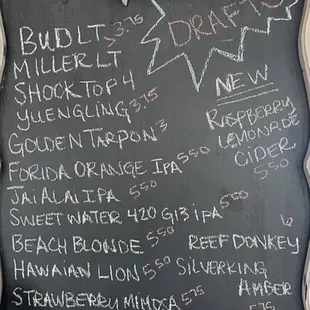 DRAFT
BUD LT 3.75
MILLER LT
SHOCK TOP 4
YUENGLING 3.75
GOLDEN TARPON 3
FORIDA ORANGE IPA 5.50
JAI ALAI IPA 5.50
SWEET WATER 420 G13 IPA 5.50
BEACH BLONDE 5.50
HAWAIIAN LION 5.50
STRAWBERRY MIMOSA 5.75
NEW
RASPBERRY
LEMONADE
CIDER
5.50
6
REEF DONKEY
SILVERKING
AMBER
5.75